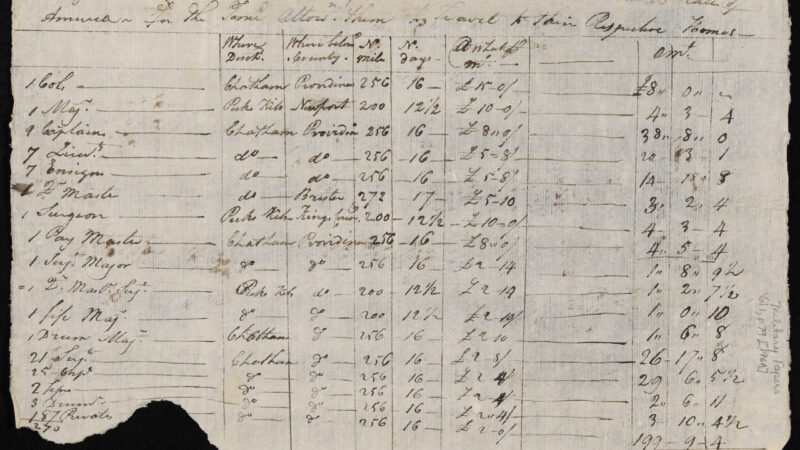 State of
America for the Time Allow'd them to Travel to their Respective Homes
Where Disch. Where belong County. No. mile No. days @ What ⅌ m. amt.
1 Colo Chatham Providence 256 16 £15-0/ £8 0
1 Maj. Peeks Kils Newport 200 12½ £10-0/ 4 3 4
9 Captain Chatham Providen 256 16 £8 0/ 38 8 0
7 Lieuts do do 256 16 £5-8/ 20 3 1
7 Ensigns do do 256 16 £5-8/ 14 18 8
1 Qr Maste do Bristol 272 17 £5-10 3 2 4
1 Surgeon Peeks Kils Kings 200 12½ £10-0/ 4 3 4
1 Pay Maste Chatham Providence 256 16 £8 0/ 4 5 4
1 Serjt Major do do 256 16 £2-14 1 8 9½
1 Qr Mastr Serjt Peeks Kils do 200 12½ £2-14 1 2 7½
1 fife Maj. do do 200 12½ £2-10/ 1 0 10
1 Drum Maj. Chatham do 256 16 £2 10 1 6 8
21 Serjt Chatham do 256 16 £2-8/ 26 17 8
25 Corpl do do 256 16 £2 4/ 29 6 5½
2 fifes do do 256 16 £2 4/ 2 6 11
3 Drums do do 256 16 £2 4/ 3 10 4½
187 Privates do do 256 16 £2-0/ 199 9 4
270
Military Papers